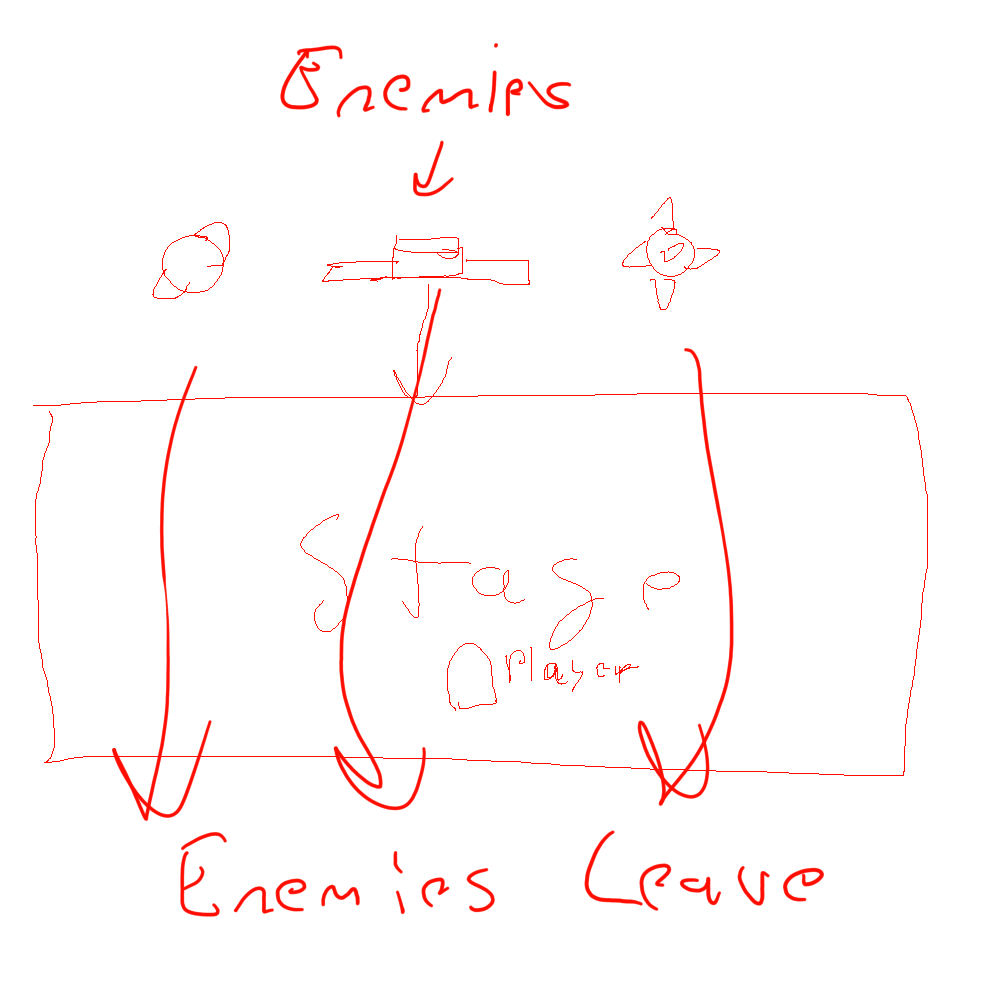 Enemies
Stage
Player
Enemies Leave